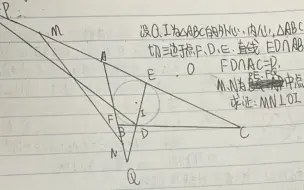 设O,I为△ABC的外心,内心,△ABC
切三边于点F,D,E.直线 ED∩AB
FD∩AC=P.
M,N为 中点
求证:MN⊥OI
P
M
A
E
O
I
F
B
D
C
N
Q